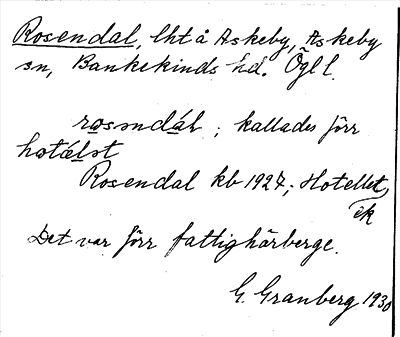 Rosendal, lht å Askeby, Askeby
sn, Bankekinds hd. Ögl l.
rosəndál ; kallades förr
hotélət
Rosendal kb 1927; Hotellet,
ik
Det var förr fattighärberge.
G. Granberg 1930